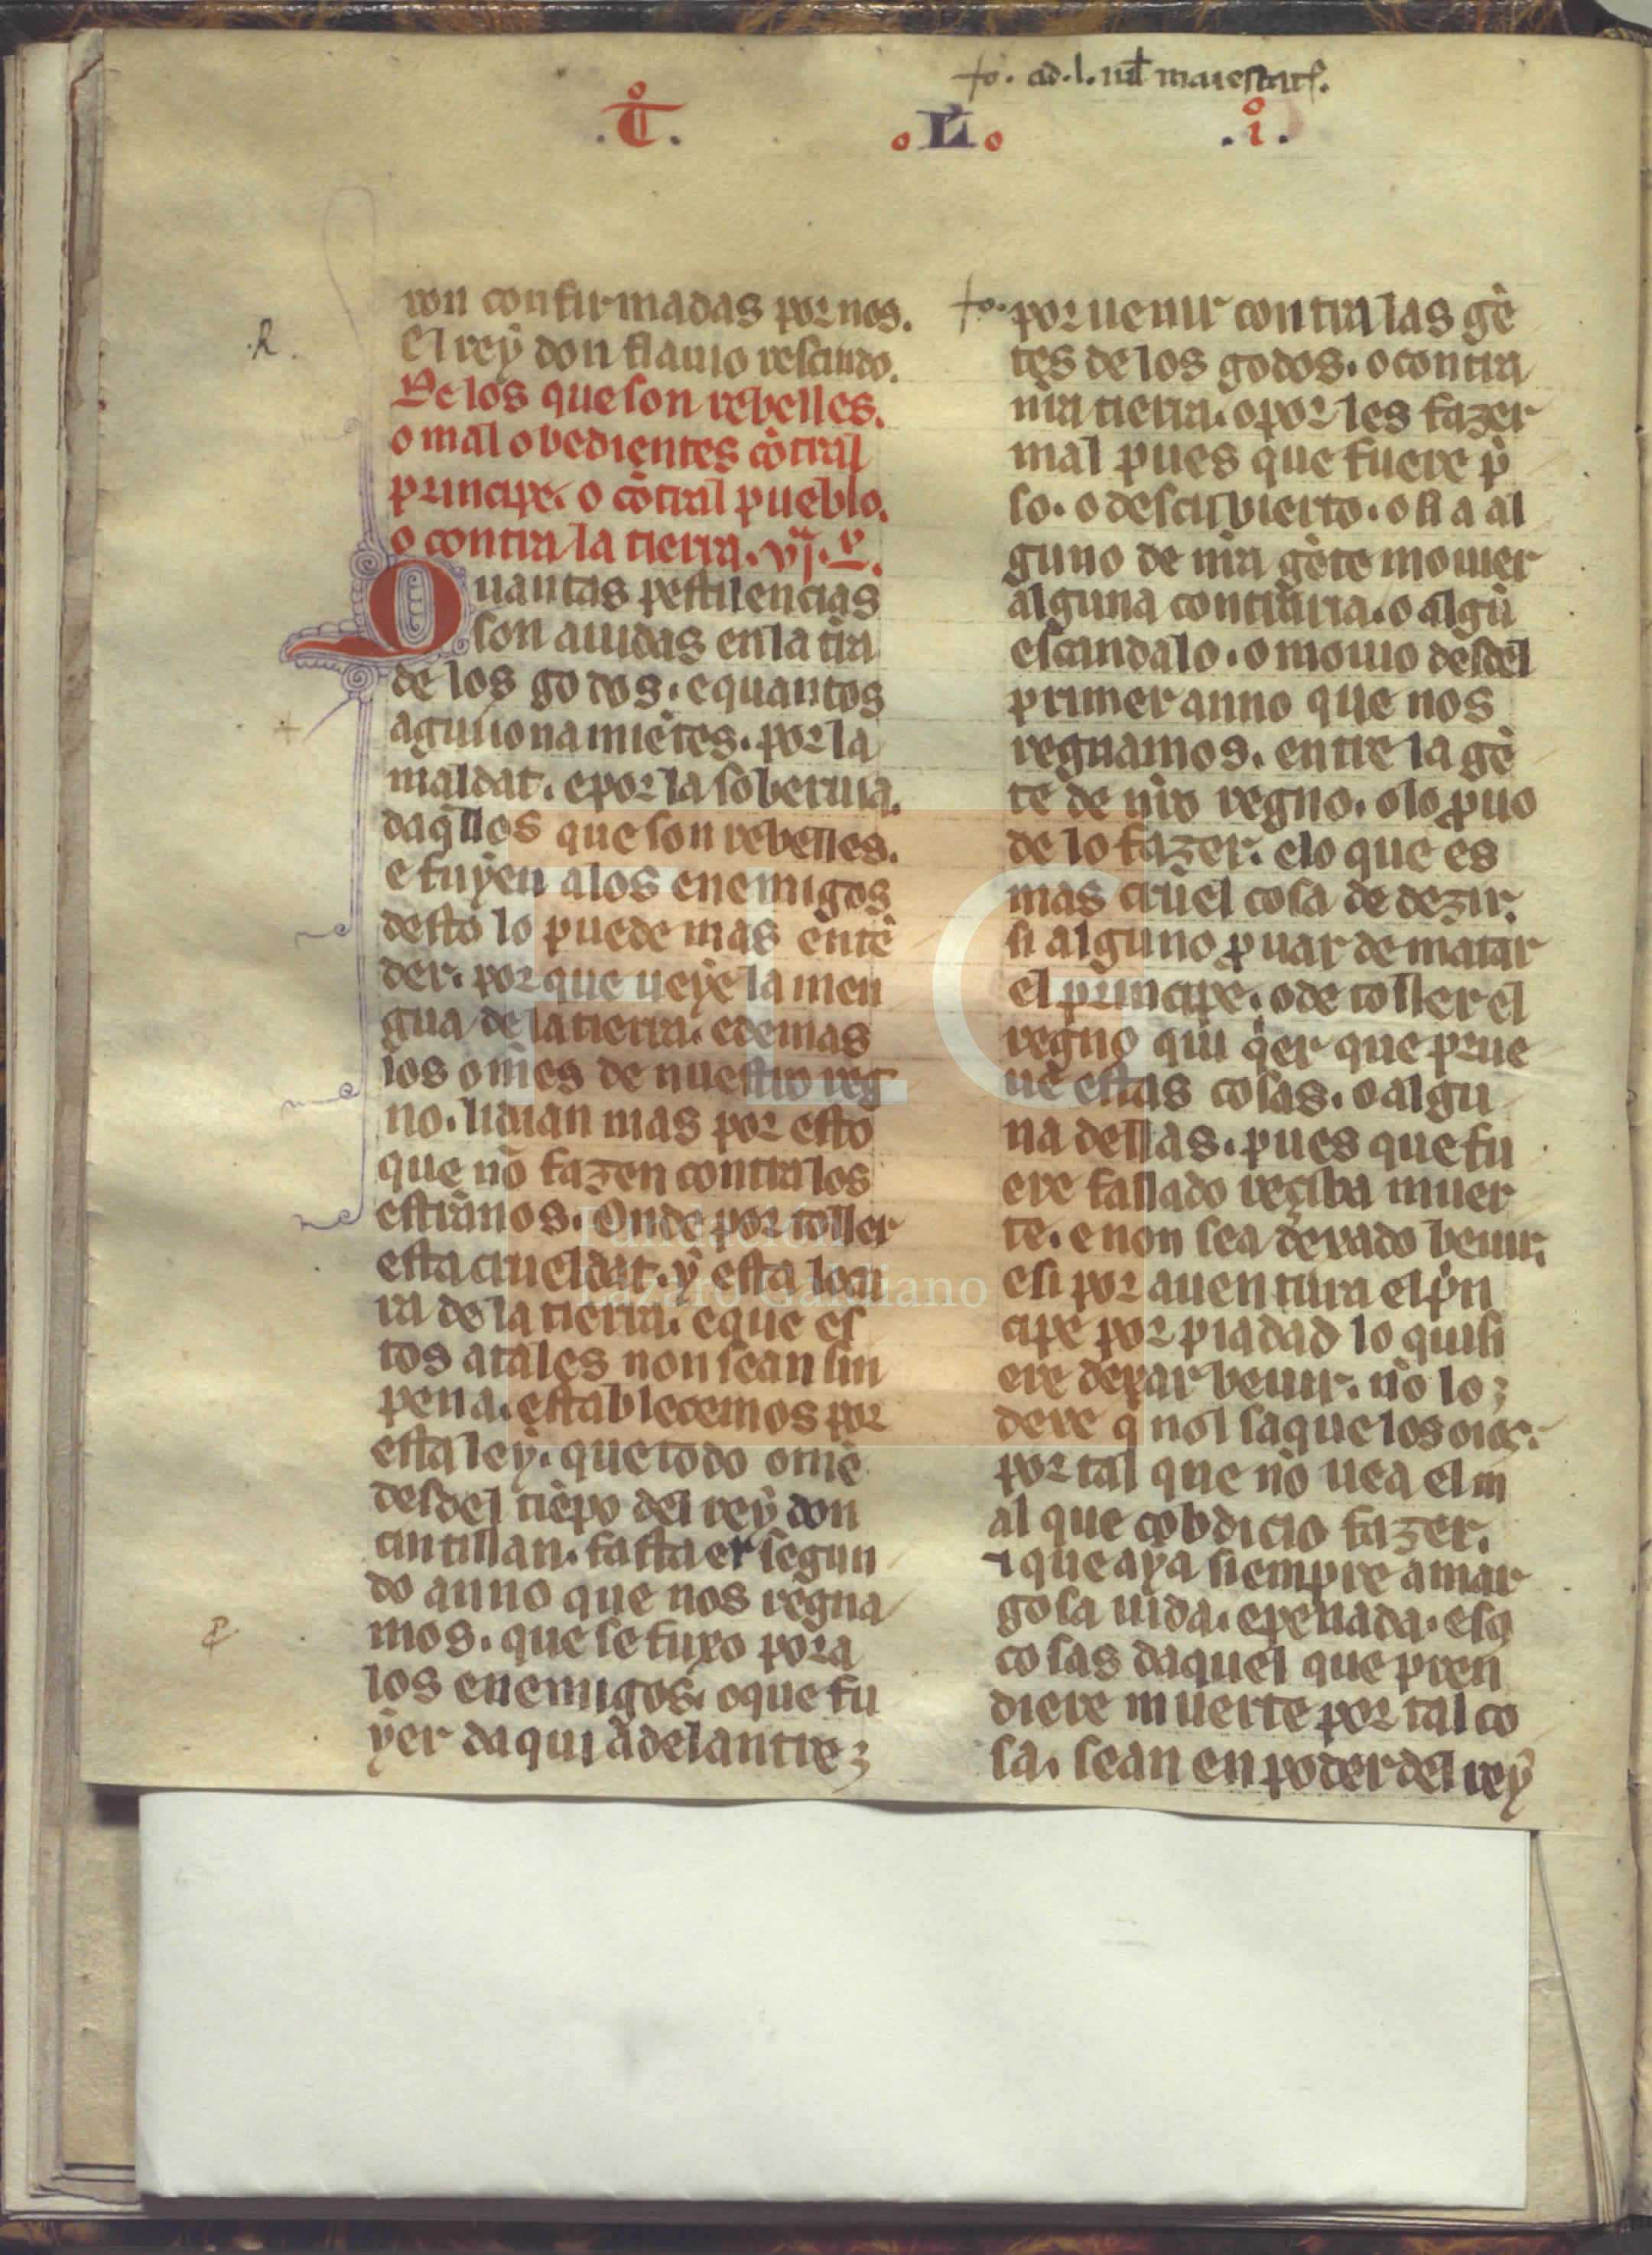 to. ad. l. iul maiestatis.
.T. .L. .i.
.R.
ron confirmadas por nos.
El rey don flauio rescindo.
De los que son rebelles.
o mal obedientes cõtral
principe. o cõtral pueblo.
o contra la tierra. vj. ley.
Quantas pestilencias
son auidas en la tr̃ra
de los godos. e quantos
aguiionamiẽtes. por la
maldat. e por la soberuia.
daq̃llos que son rebelles.
e fuyen a los enemigos
desto lo puede mas entẽ
der. por que ueye la men
gua de la tierra. e demas
los om̃es de nuestro reg
no. lidian mas por esto
que nõ fazen contra los
estrãnos. Onde por toller
esta crueldat. y esta locu
ra de la tierra. e que es
tos atales non sean sin
pena. establecemos por
esta ley. que todo om̃e
desdel tiẽpo del rey don
cintillan. fasta el segun
do anno que nos regna
mos. que se fuxo pora
los enemigos. o que fu
yer daqui adelantre;
to. por uenir contra las gẽ
tes de los godos. o contra
nr̃a tierra. o por les fazer
mal pues que fuere p̃
so. o descubierto. o si a al
guno de nr̃a gẽte mouier
alguna contraria. o algũ
escandalo. o mouio desdel
primer anno que nos
regnamos. entre la gẽ
te de nr̃o regno. o lo ꝓuo
de lo fazer. e lo que es
mas cruel cosa de dezir.
si alguno ꝓuar de matar
el principe. o de toller el
regno qui q̃er que prue
ue estas cosas. o algu
na dellas. pues que fu
ere fallado reçiba muer
te. e non sea dexado beuir.
e si por auentura el p̃n
cipe por piadad lo quisi
ere dexar beuir. nõ lo;
deue q̃ nol saque los oios.
por tal que nõ uea el m
al que cobdicio fazer.
⁊ que aya siempre amar
gosa uida. e penada. e las
cosas daquel que pren
diere muerte por tal co
sa. sean en poder del rey
FLG
Fundación
Lázaro Galdiano